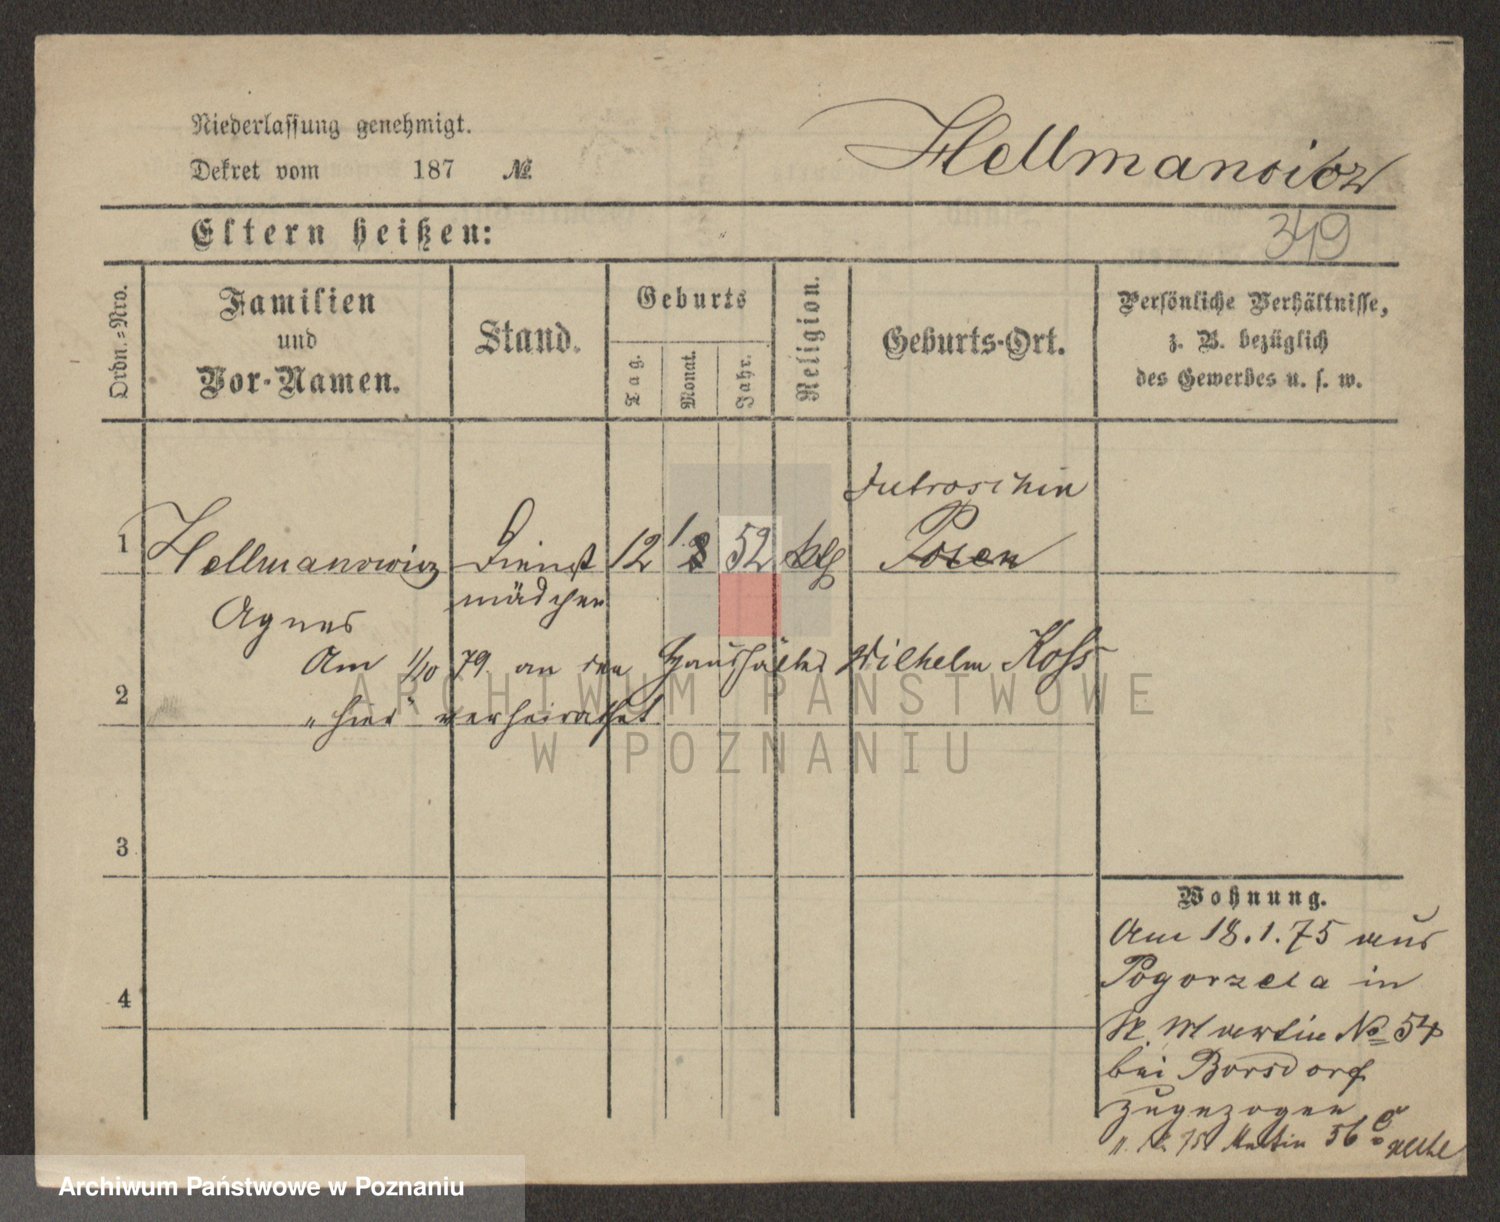 Niederlassung genehmigt.
Dekret vom 187 №
Hellmanowicz
Eltern heißen:
349
Ordn.-Nro.
Familien
und
Vor-Namen.
Stand.
Geburts
Tag.
Monat.
Jahr.
Religion.
Geburts-Ort.
Persönliche Verhältnisse,
z. B. bezüglich
des Gewerbes u. s. w.
Jutroschin
1 Hellmanowicz Dienst 12 1. 8 52 kth Posen
mädchen
Agnes
Am 1/10 79. an den Haushälter Wilhelm Koss
2
"hier" verheirathet
ARCHIWUM PAŃSTWOWE
W POZNANIU
3
Wohnung.
Am 18.1.75 aus
Pogorzela in
St. Martin No 54
bei Borsdorf
zugezogen
4
Martin 56
Archiwum Państwowe w Poznaniu